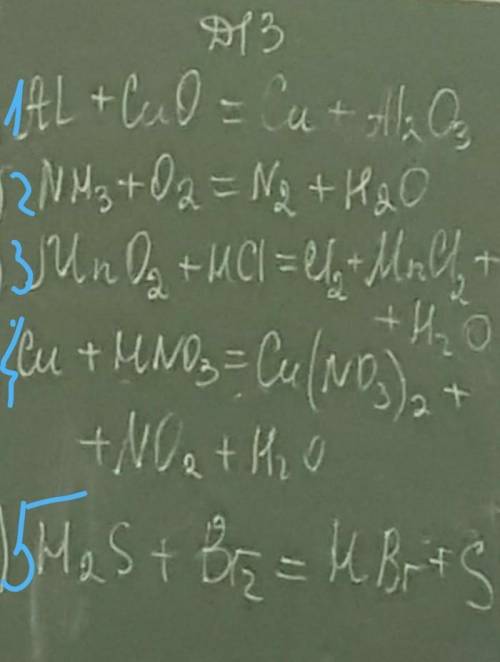 ДЗ
1 Al + CuO = Cu + Al₂O₃
2 NH₃ + O₂ = N₂ + H₂O
3) MnO₂ + HCl = Cl₂ + MnCl₂ +
+ H₂O
4 Cu + HNO₃ = Cu(NO₃)₂ +
+ NO₂ + H₂O
) 5 H₂S + Br₂ = HBr + S